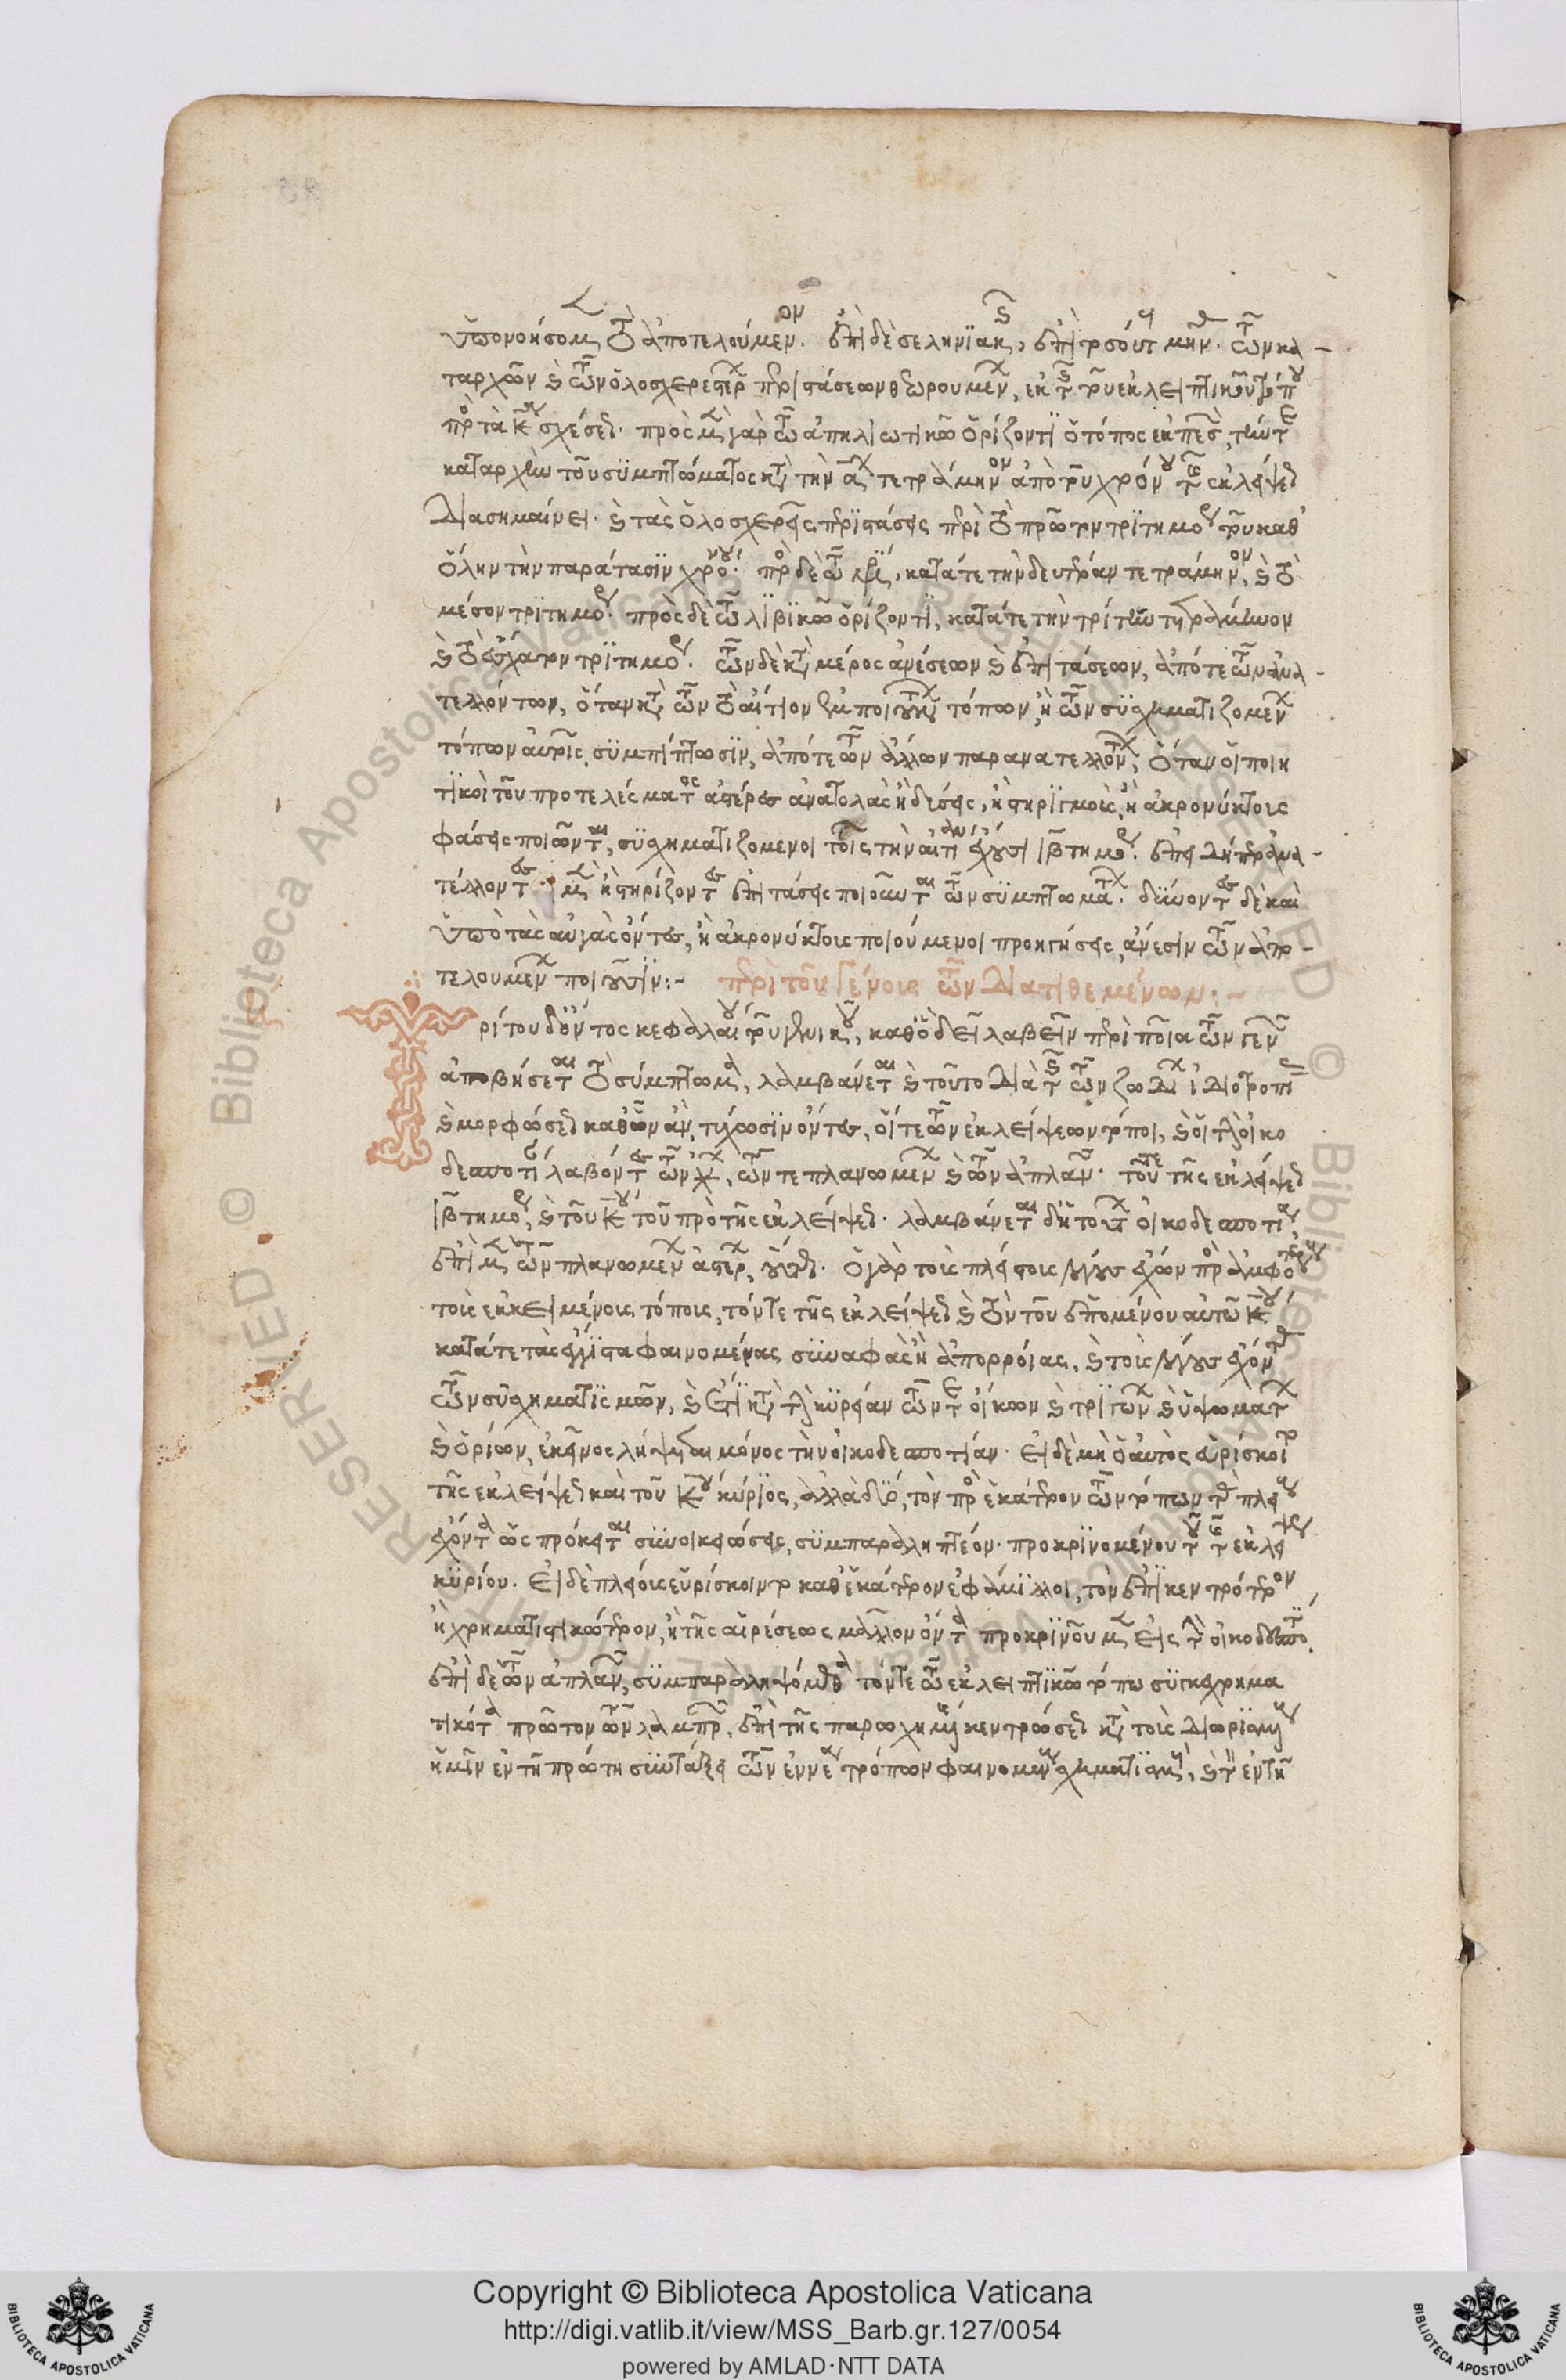 ὑπονοήσομεν τὸ ἀποτελούμενον. ἐπὶ δὲ σεληνϊακῆς, ἐπὶ τοσούτους μῆνας. τῶν κα-
ταρχῶν καὶ τῶν ὁλοσχερεστέρων περιστάσεων θεωρουμένων, ἐκ τῆς τοῦ ἐκλειπτικοῦ τόπου
πρὸς τὰ κέντρα σχέσεως. πρὸς μὲν γὰρ τῶ ἀπηλιωτικῶ ὁρίζοντϊ ὁ τόπος ἐκπεσὼν, τήν τε
καταρχὴν τοῦ συμπτώματος κατὰ τὴν πρώτην τετράμηνον ἀπὸ τοῦ χρόνου τῆς ἐκλείψεως
διασημαίνει. καὶ τὰς ὁλοσχερεῖς περϊστάσεις περὶ τὸ πρῶτον τρϊτημόριον τοῦ καθ'
ὅλην τὴν παράτασϊν χρόνου. πρὸς δὲ τῶ μεσουρανήματι, κατά τε τὴν δευτέραν τετράμηνον, καὶ τὸ
μέσον τρϊτημόριον. πρὸς δὲ τῶ λϊβϊκῶ ὁρίζοντϊ, κατά τε τὴν τρίτην τετράμηνον
καὶ τὸ ἔσχατον τρϊτημόριον. τῶν δὲ κατὰ μέρος ἀνέσεων καὶ ἐπιτάσεων, ἀπό τε τῶν ἀνα-
τελλόντων, ὅταν κατὰ τῶν τὸ αἴτιον ἐμποιούντων τόπων, ἢ τῶν συσχηματιζομένων
τόπων αὐτοῖς, συμπίπτωσϊν, ἀπό τε τῶν ἄλλων παρανατελλόντων, ὅταν οἱ ποιη
τϊκοὶ τοῦ προτελέσματος ἀστέρες ἀνατολὰς ἢ δύσεις, ἢ στηρϊγμοὺς, ἢ ἀκρονύκτους
φάσεις ποιῶνται, συσχηματιζόμενοι τοῖς τὴν αἰτίαν ἔχουσι δωδεκατημορίοις. ἐπειδήπερ ἀνα-
τέλλοντες μὲν ἢ στηρίζοντες ἐπιτάσεις ποιοῦνται τῶν συμπτωμάτων. δύνοντες δὲ καὶ
ὑπὸ τὰς αὐγὰς ὄντες, ἢ ἀκρονύκτους ποιούμενοι προηγήσεις, ἄνεσιν τῶν ἀπο-
τελουμένων ποιοῦσϊν:- περὶ τοῦ γένους τῶν διατιθεμένων:-
Τρίτου δ' ὄντος κεφαλαίου τοῦ γενικοῦ, καθ' ὃ δεῖ λαβεῖν περὶ ποῖα τῶν γενῶν
ἀποβήσεται τὸ σύμπτωμα, λαμβάνεται καὶ τοῦτο διὰ τῆς τῶν ζωδίων ἰδιοτροπίας
καὶ μορφώσεως καθ' ὧν ἂν τύχωσϊν ὄντες, οἵ τε τῶν ἐκλείψεων τόποι, καὶ οἱ τὴν οἰκο
δεσποτίαν λαβόντες τῶν ἀστέρων, τῶν τε πλανωμένων καὶ τῶν ἀπλανῶν. τοῦ τε τῆς ἐκλείψεως
δωδεκατημορίου, καὶ τοῦ κέντρου τοῦ πρὸ τῆς ἐκλείψεως. λαμβάνεται δὴ τούτων οἰκοδεσποτία,
ἐπὶ μὲν τῶν πλανωμένων ἀστέρων, οὕτως. ὁ γὰρ τοὺς πλείστους λόγους ἔχων πρὸς ἀμφοτέρους
τοὺς ἐκκειμένους τόπους, τόν τε τῆς ἐκλείψεως καὶ τὸν τοῦ ἑπομένου αὐτῶ κέντρου
κατά τε τὰς ἔγγιστα φαινομένας συναφὰς ἢ ἀπορροίας, καὶ τοὺς λόγους ἔχοντας
τῶν συσχηματϊσμῶν, καὶ ἔτϊ κατὰ τὴν κυρείαν τῶν τε οἴκων καὶ τρϊγώνων καὶ ὑψωμάτων
καὶ ὁρίων, ἐκεῖνος λήψεται μόνος τὴν οἰκοδεσποτίαν. εἰ δὲ μὴ ὁ αὐτὸς εὑρίσκοιτο
τῆς ἐκλείψεως καὶ τοῦ κέντρου κύρϊος, ἀλλὰ δύο, τὸν πρὸς ἑκάτερον τῶν τόπων τὰς πλείους
ἔχοντα ὡς πρόκειται συνοικειώσεις, συμπαραληπτέον. προκρϊνομένου τοῦ τῆς ἐκλείψεως
κυρίου. εἰ δὲ πλείους εὑρίσκοιντο καθ' ἑκάτερον ἐφάμϊλλοι, τὸν ἐπϊκεντρότερον,
ἢ χρηματιστικώτερον, ἢ τῆς αἱρέσεως μᾶλλον ὄντα προκρϊνοῦμεν εἰς τὴν οἰκοδεσποτίαν.
ἐπὶ δὲ τῶν ἀπλανῶν, συμπαραληψόμεθα τόν τε τῶ ἐκλειπτϊκῶ τόπω συγκεχρημα
τικότα πρῶτον τῶν λαμπρῶν, ἐπὶ τῆς παρωχημένης κεντρώσεως κατὰ τοὺς διωρισμένους
ἡμῖν ἐν τῆ πρώτη συντάξει τῶν ἐννέα τρόπων φαινομένους σχηματϊσμοὺς, καὶ τὸν ἐν τῆ
Copyright © Biblioteca Apostolica Vaticana
http://digi.vatlib.it/view/MSS_Barb.gr.127/0054
powered by AMLAD·NTT DATA